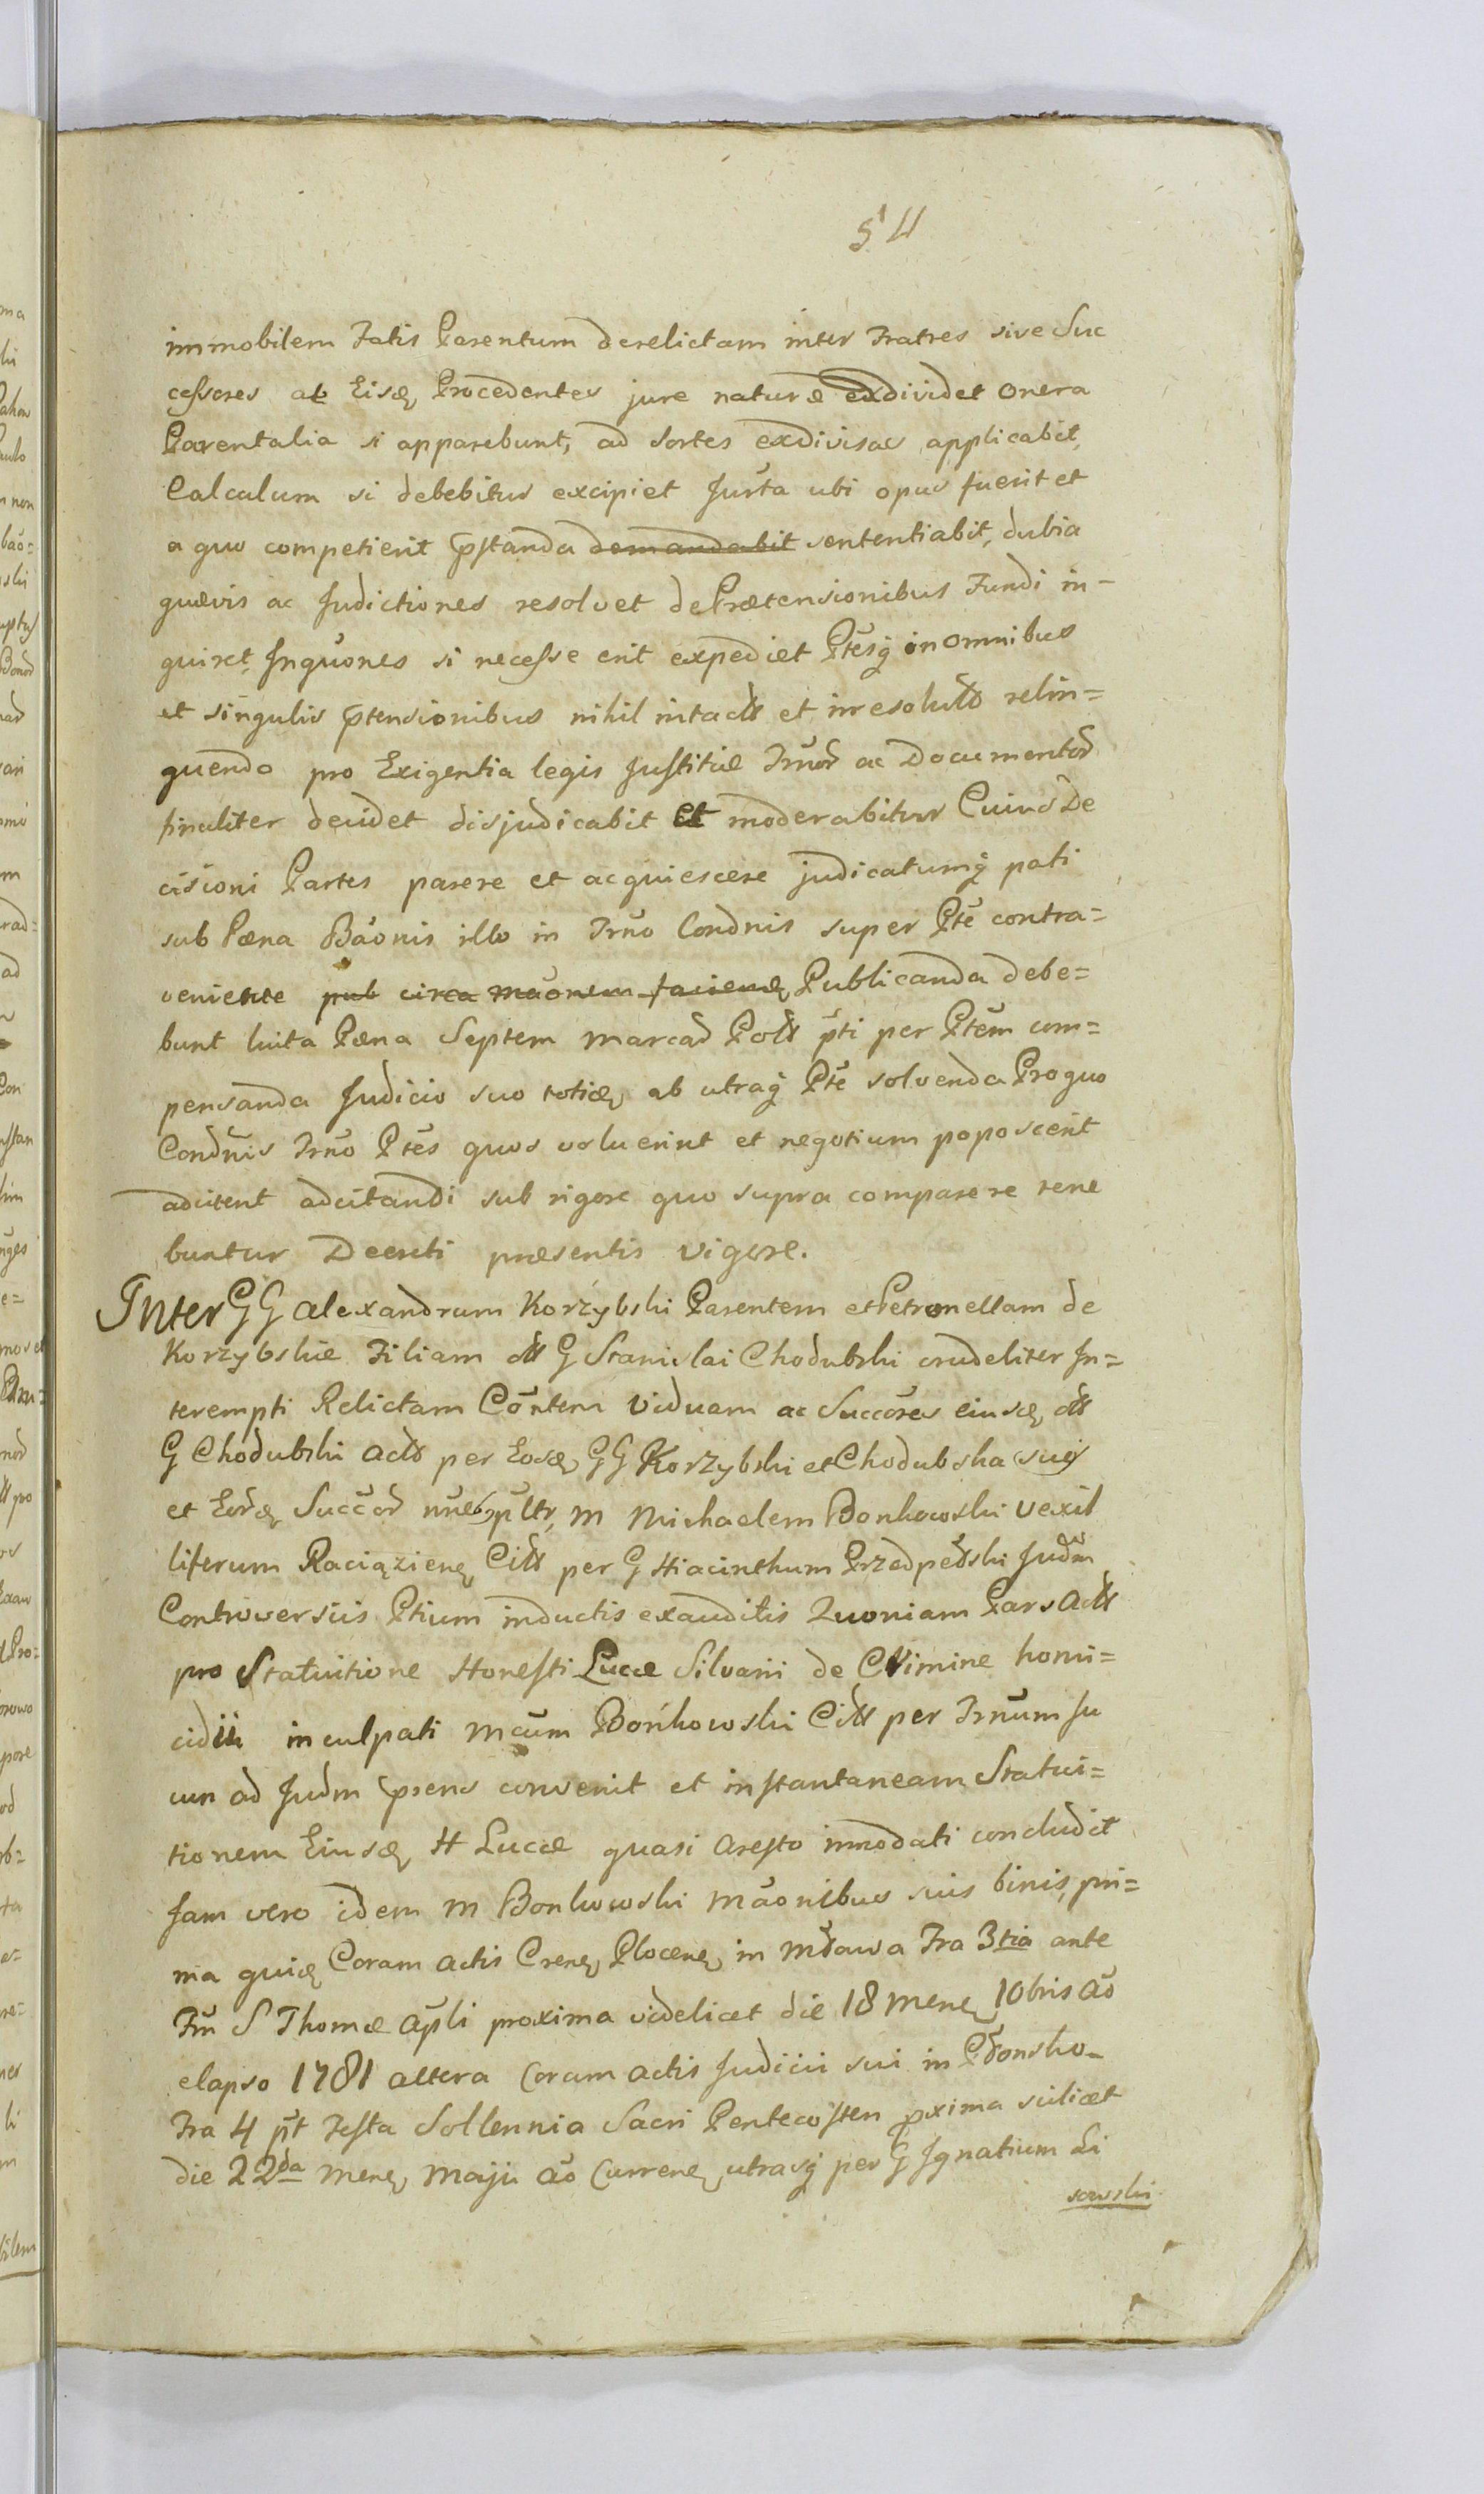 54
immobilem Fatis Parentum derelictam inter Fratres sive Suc
cessores ab Eisdꝫ Procedentes jure naturæ exdividet onera
Parentalia si apparebunt, ad Sortes exdivisas applicabit,
Calculum si debebitur excipiet Jurta ubi opus fuerit et
a quo competierit p̃standa demandabit sententiabit, dubia
quævis ac Judictiones resolvet de Prætensionibus Fundi in-
quiret, Inquõnes si necesse erit expediet Ptẽsq̃ in omnibus
et singulis p̃tensionibus nihil intactt et irresolutt relin=
quendo pro Exigentia legis Justitiæ Jrũor ac Documentor
finaliter decidet disjudicabit et moderabitur Cuius De
cisioni Partes parere et acquiescere judicatumq̃ pati
sub Pæna Bãonis illo in Trũo Condnis super Ptẽ contra=
veniente pub circa mãonem faciendꝫ Publicanda debe=
bunt luita Pæna Septem marcar Poll p̃ti per Ptẽm com=
pensanda Judicio suo toties ab utraq̃ Ptẽ solvenda Pro quo
Condñis Trño Ptẽs quos voluerint et negotium poposcerit
adcitent adcitandi sub rigore quo supra comparere tene
buntur Decreti præsentis vigore.
Inter GG Alexandrum Korzybski Parentem et Petronellam de
Korzybskie Filiam ott G Stanislai Chodubski crudeliter In=
terempti Relictam Cõntem Viduam ac Succõres eiusdꝫ ott
G Chodubski Actt per Eosdꝫ GG Korzybski et Chodubska suoq̃
et Eordꝫ Succõr m Michaelem Bonkowski Vexil
liferum Raciązienꝫ Citt per G Hiacinthum Przedpełski Judm̃
Controversiis Ptium inductis exauditis Quoniam Pars Actt
pro Statuitione Honesti Lucæ Silvani de Crimine homi=
cidii inculpati Mcũm Bońkowski Citt per Trñum Ju
cun ad Judm p̃rens convenit et instantaneam Statui=
tionem Eiusdꝫ H Lucæ quasi Aresto innodati concludit
Jam vero idem M Bonkowski Mãonibus suis binis, pri=
ma quidꝫ Coram Actis Crenꝫ Plocenꝫ in Mława Fra 3tia ante
Fm̃ S Thomæ Ap̃li proxima videlicet die 18 Mensꝫ 10bris Aõ
elapso 1781 altera Coram Actis Judicii sui in Płonsko-
Fra 4 p̃t Festa Sollennia Sacri Pentecosten pxima scilicet
die 22da Mensꝫ Maji Aõ Currenꝫ utrasq̃ per G Ignatium Li
sowski